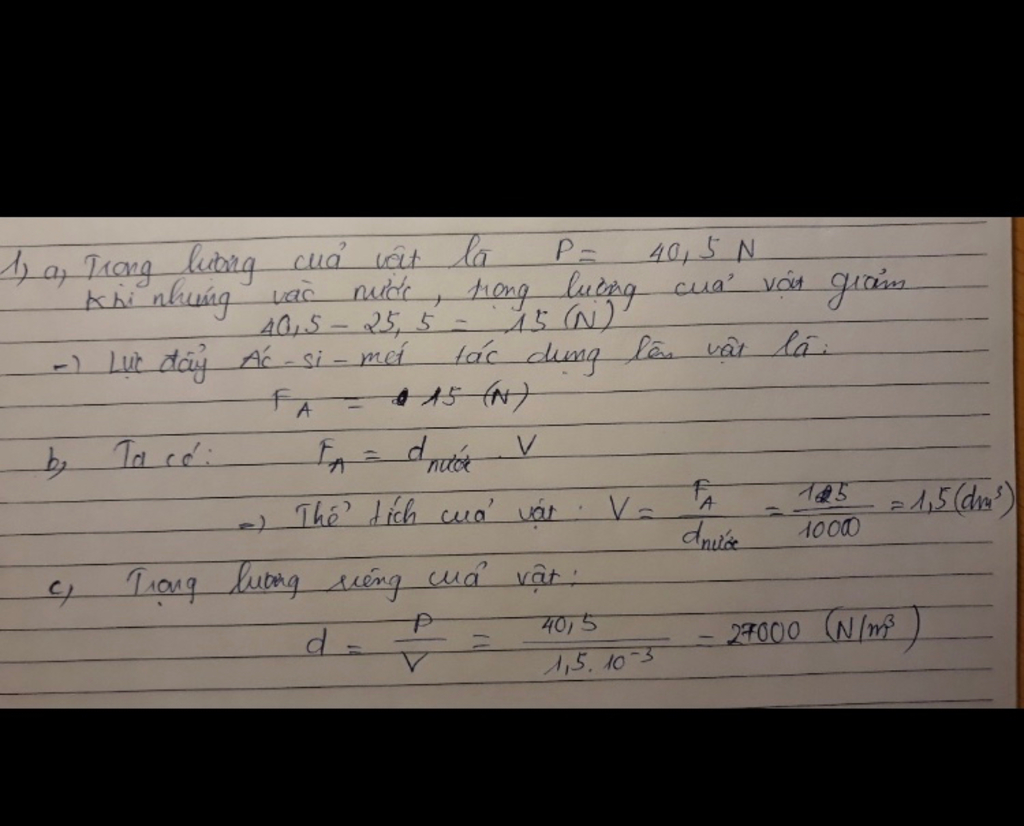 1, a, Trọng lượng của vật là P = 40,5 N
Khi nhúng vào nước, trọng lượng của vật giảm
40,5 - 25,5 = 15 (N)
-) Lực đẩy Ác-si-mét tác dụng lên vật là:
F_A = 15 (N)
b, Ta có: F_A = d_nước . V
=) Thể tích của vật: V = F_A / d_nước = 15 / 10000 = 1,5 (dm³)
c, Trọng lượng riêng của vật:
d = P / V = 40,5 / 1,5.10⁻³ = 27000 (N/m³)